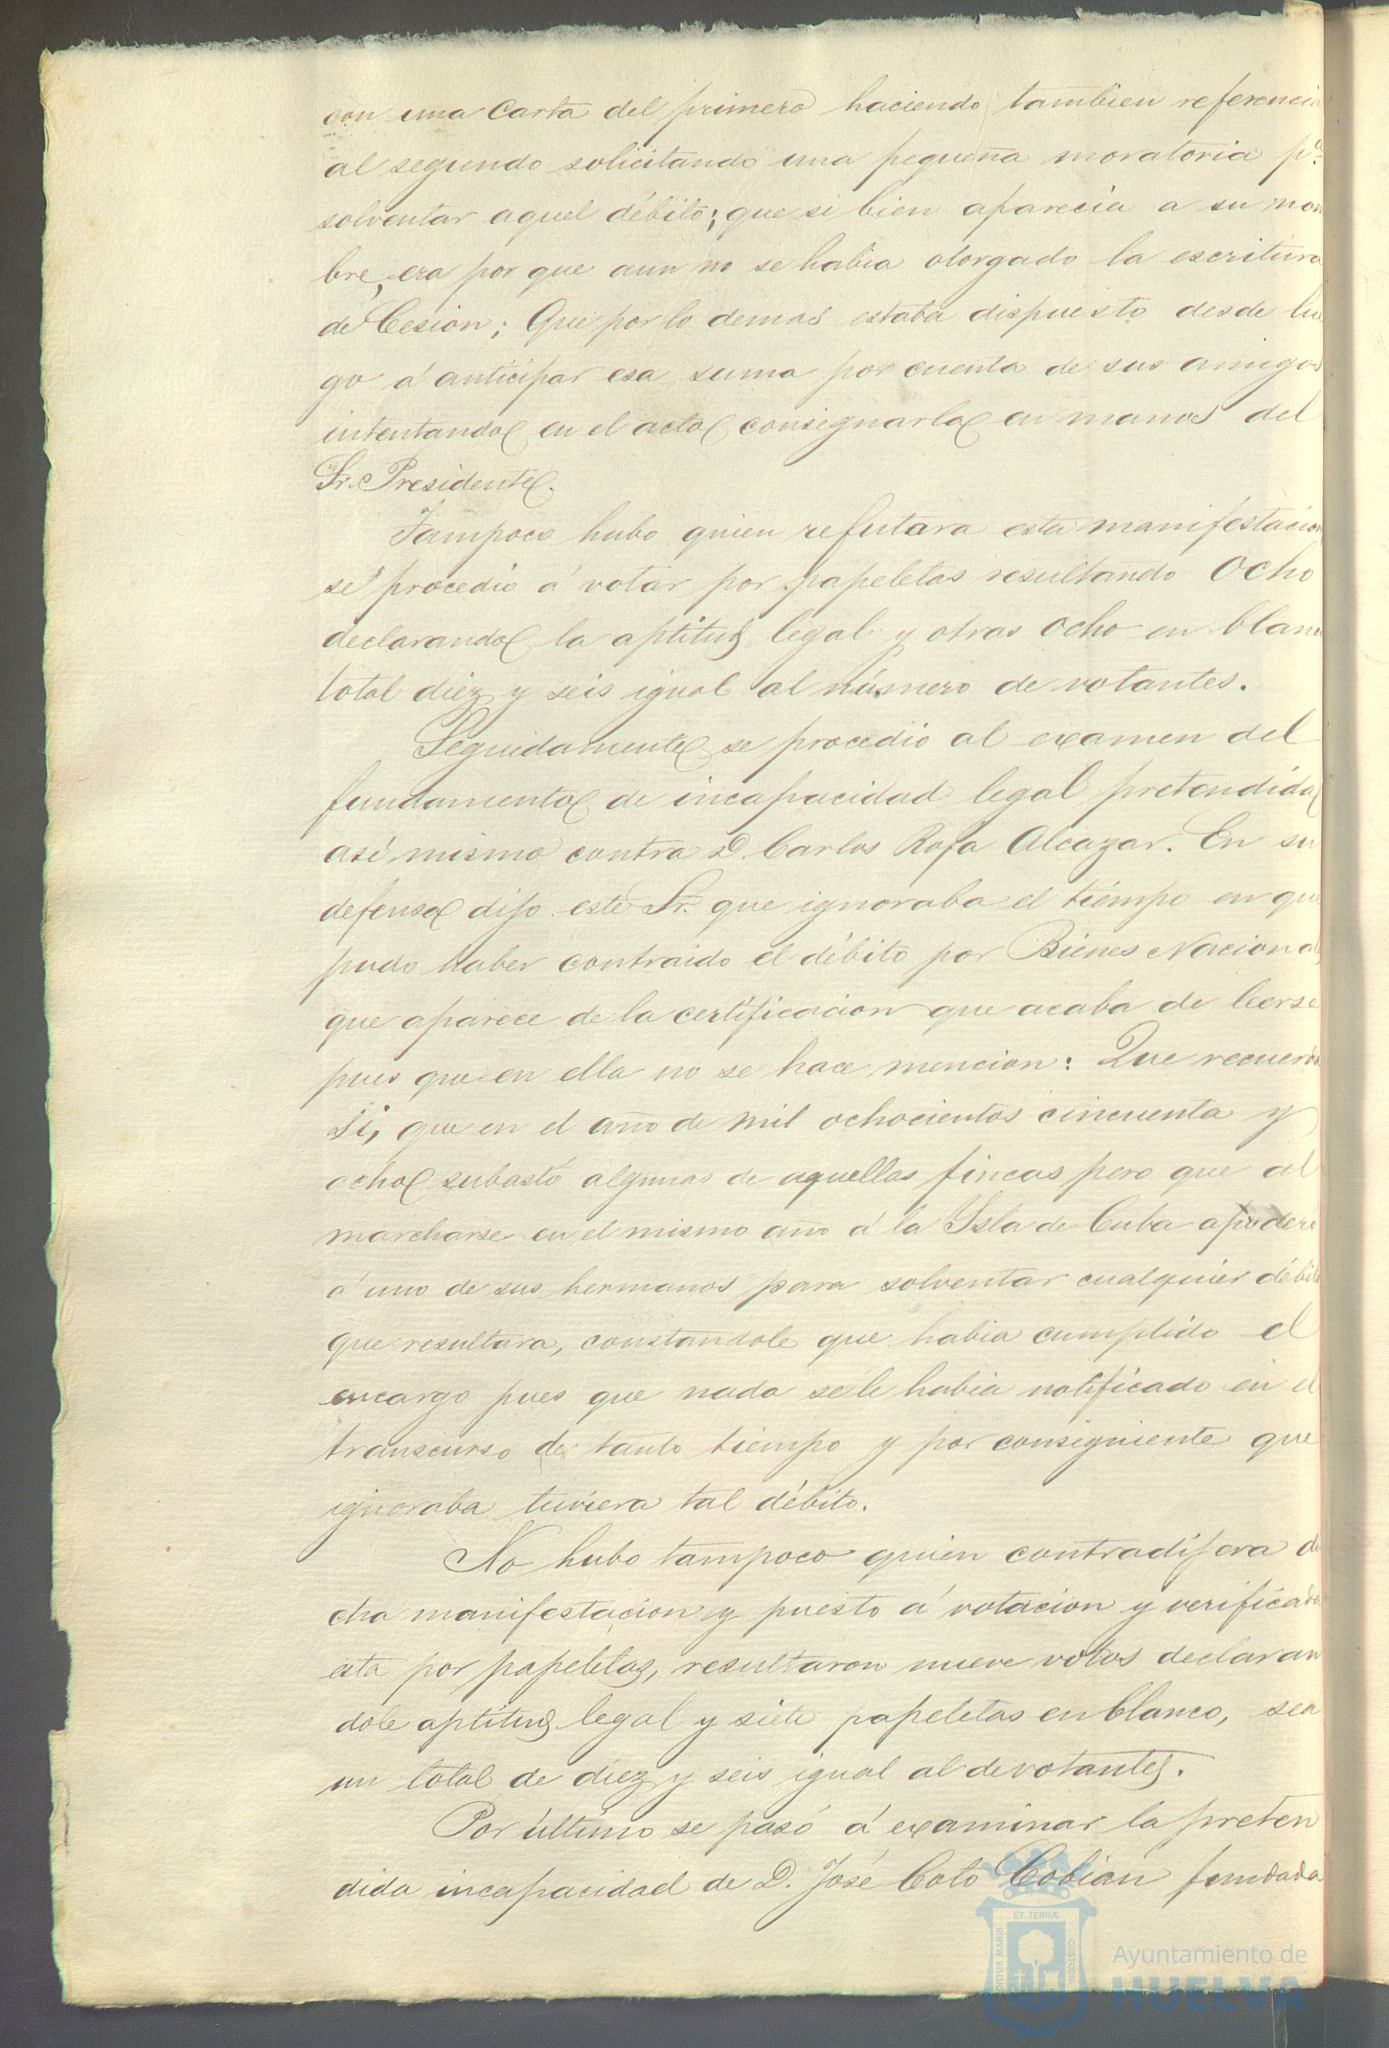 con una Carta del primero haciendo tambien referencia
al segundo solicitando una pequeña moratoria pª
solventar aquel débito; que si bien aparecia a su nom
bre, era por que aun no se habia otorgado la escritura
de Cesion; Que por lo demas estaba dispuesto desde lue
go á anticipar esa suma por cuenta de sus amigos
intentando en el acto consignarlo en manos del
Sr. Presidente.
Tampoco hubo quien refutara esta manifestacion
se procedió á votar por papeletas resultando Ocho
declarando la aptitud legal y otras Ocho en blanco
total diez y seis igual al número de votantes.
Seguidamente se procedió al examen del
fundamento de incapacidad legal pretendida
así mismo contra D. Carlos Rofa Alcazar. En su
defensa dijo este Sr. que ignoraba el tiempo en que
pudo haber contraido el débito por Bienes Nacional
que aparece de la certificacion que acaba de leerse
pues que en ella no se hace mencion: Que recuerda
si, que en el año de mil ochocientos cincuenta y
ocho subastó algunas de aquellas fincas pero que al
marcharse en el mismo año á la Ysla de Cuba apoderó
á uno de sus hermanos para solventar cualquier débito
que resultara, constandole que habia cumplido el
encargo pues que nada se le habia notificado en el
transcurso de tanto tiempo y por consiguiente que
ignoraba tuviera tal débito.
No hubo tampoco quien contradijera di
cha manifestacion y puesto á votacion y verificada
esta por papeletas, resultaron nueve votos declaran
dole aptitud legal y siete papeletas en blanco, sea
un total de diez y seis igual al de votantes.
Por último se pasó á examinar la preten
dida incapacidad de D. José Coto Cobian fundada
ET TERRÆ
PORTUS MARIS
CUSTODIA
Ayuntamiento de
HUELVA